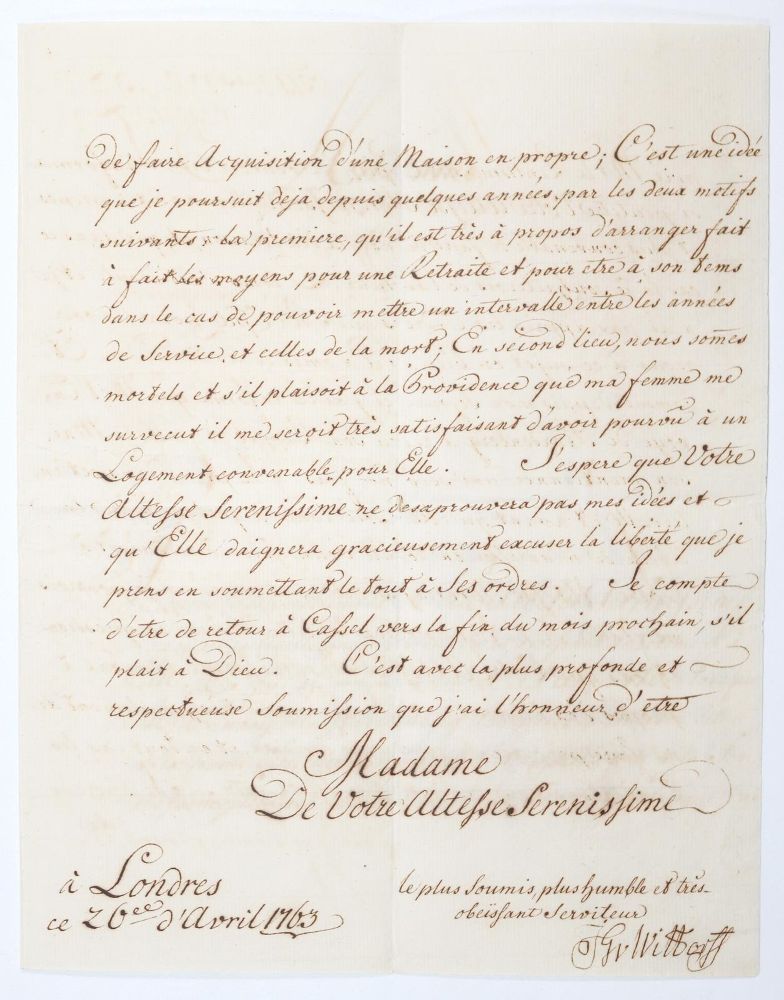 de faire Acquisition d'une Maison en propre; C'est une idée
que je poursuit deja depuis quelques années par les deux motifs
suivants: la premiere, qu'il est très à propos d'arranger fait
à fait les moyens pour une Retraite et pour etre à son tems
dans le cas de pouvoir mettre un intervalle entre les années
de Service et celles de la mort; En second lieu, nous som̅es
mortels et s'il plaisoit à la Providence que ma femme me
survecut il me seroit très satisfaisant d'avoir pourvû à un
Logement convenable pour Elle. J'espère que Votre
Altesse Serenissime ne desaprouvera pas mes idées et
qu'Elle daignera gracieusement excuser la liberté que je
prens en soumettant le tout à Ses ordres. Je compte
d'etre de retour à Cassel vers la fin du mois prochain, s'il
plait à Dieu. C'est avec la plus profonde et
respectueuse Soumission que j'ai l'honneur d'etre
Madame
De Votre Altesse Serenissime
à Londres
ce 26ee d'Avril 1763
le plus Soumis, plus humble et très-
obeïssant Serviteur